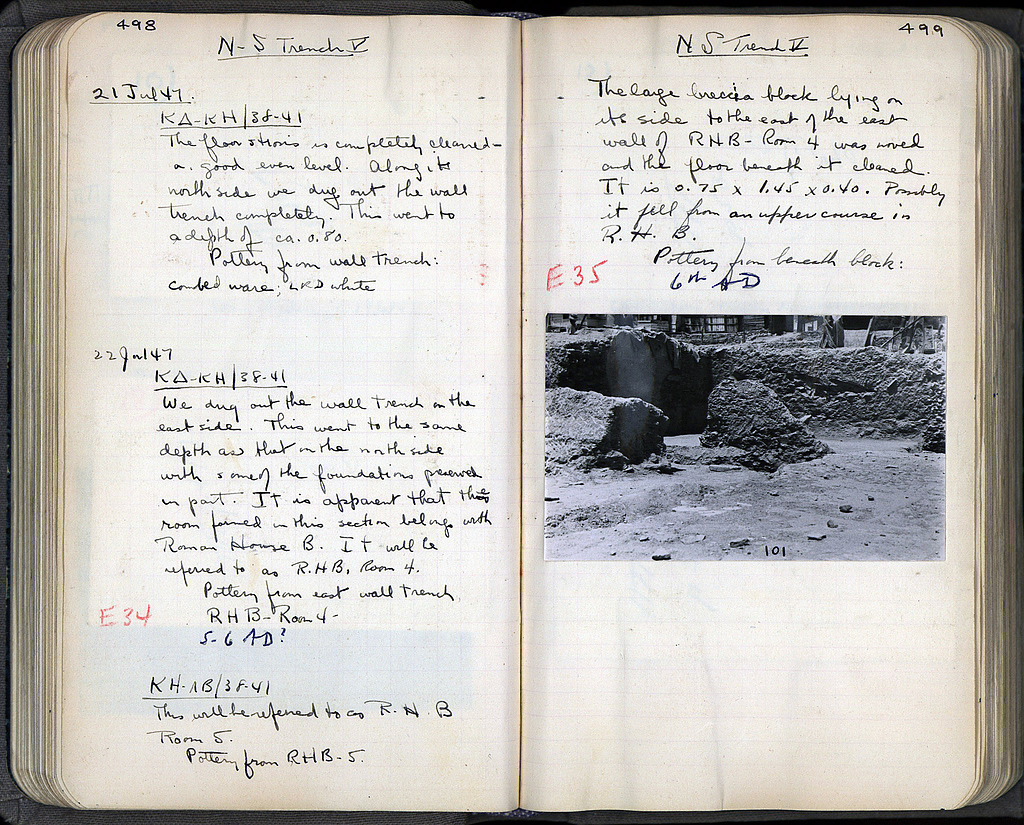 498
N-S Trench V
21 Jul 47.
KΔ-KH/38-41
The floor is completely cleaned-
a good even level. Along its
north side we dug out the wall
trench completely. This went to
a depth of ca. 0.80.
Pottery from wall trench:
combed ware; white
22 Jul 47
KΔ-KH/38-41
We dug out the wall trench on the
east side. This went to the same
depth as that on the north side
with some of the foundations preserved
in part. It is apparent that the
room found in this section belongs with
Roman House B. It will be
referred to as R.H.B, Room 4.
Pottery from east wall trench
E 34
RHB-Room 4-
5-6 AD?
KH-ΛB/38-41
This will be referred to as R.H.B
Room 5.
Pottery from RHB-5.
499
N S Trench V
The large breccia block lying on
its side to the east of the east
wall of RHB-Room 4 was moved
and the floor beneath it cleaned.
It is 0.75 x 1.45 x 0.40. Possibly
it fell from an upper course in
R.H.B.
Pottery from beneath block:
E 35
6th AD
101